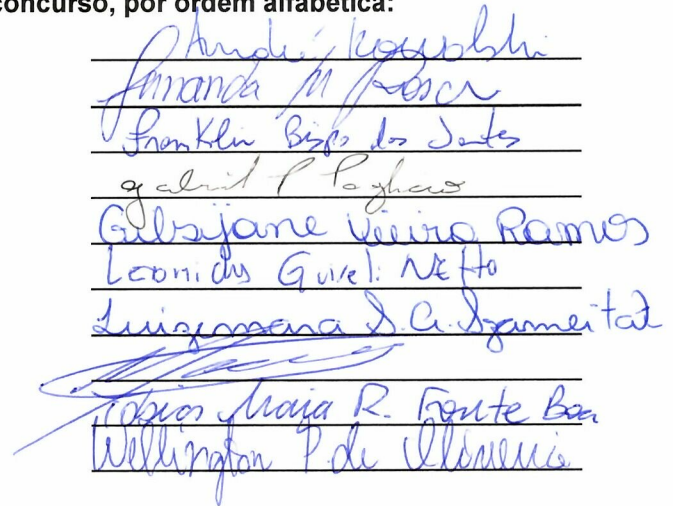 concurso, por ordem alfabética:
André Kowalski
Fernanda M Rosa
Franklin Bispo dos Santos
gabriel P Pagliari
Gibsijane Vieira Ramos
Leonidas Guireli Netto
Luizemara S. A. Szameitat
Tobias Maia R. Fonte Boa
Wellington P. de Oliveira